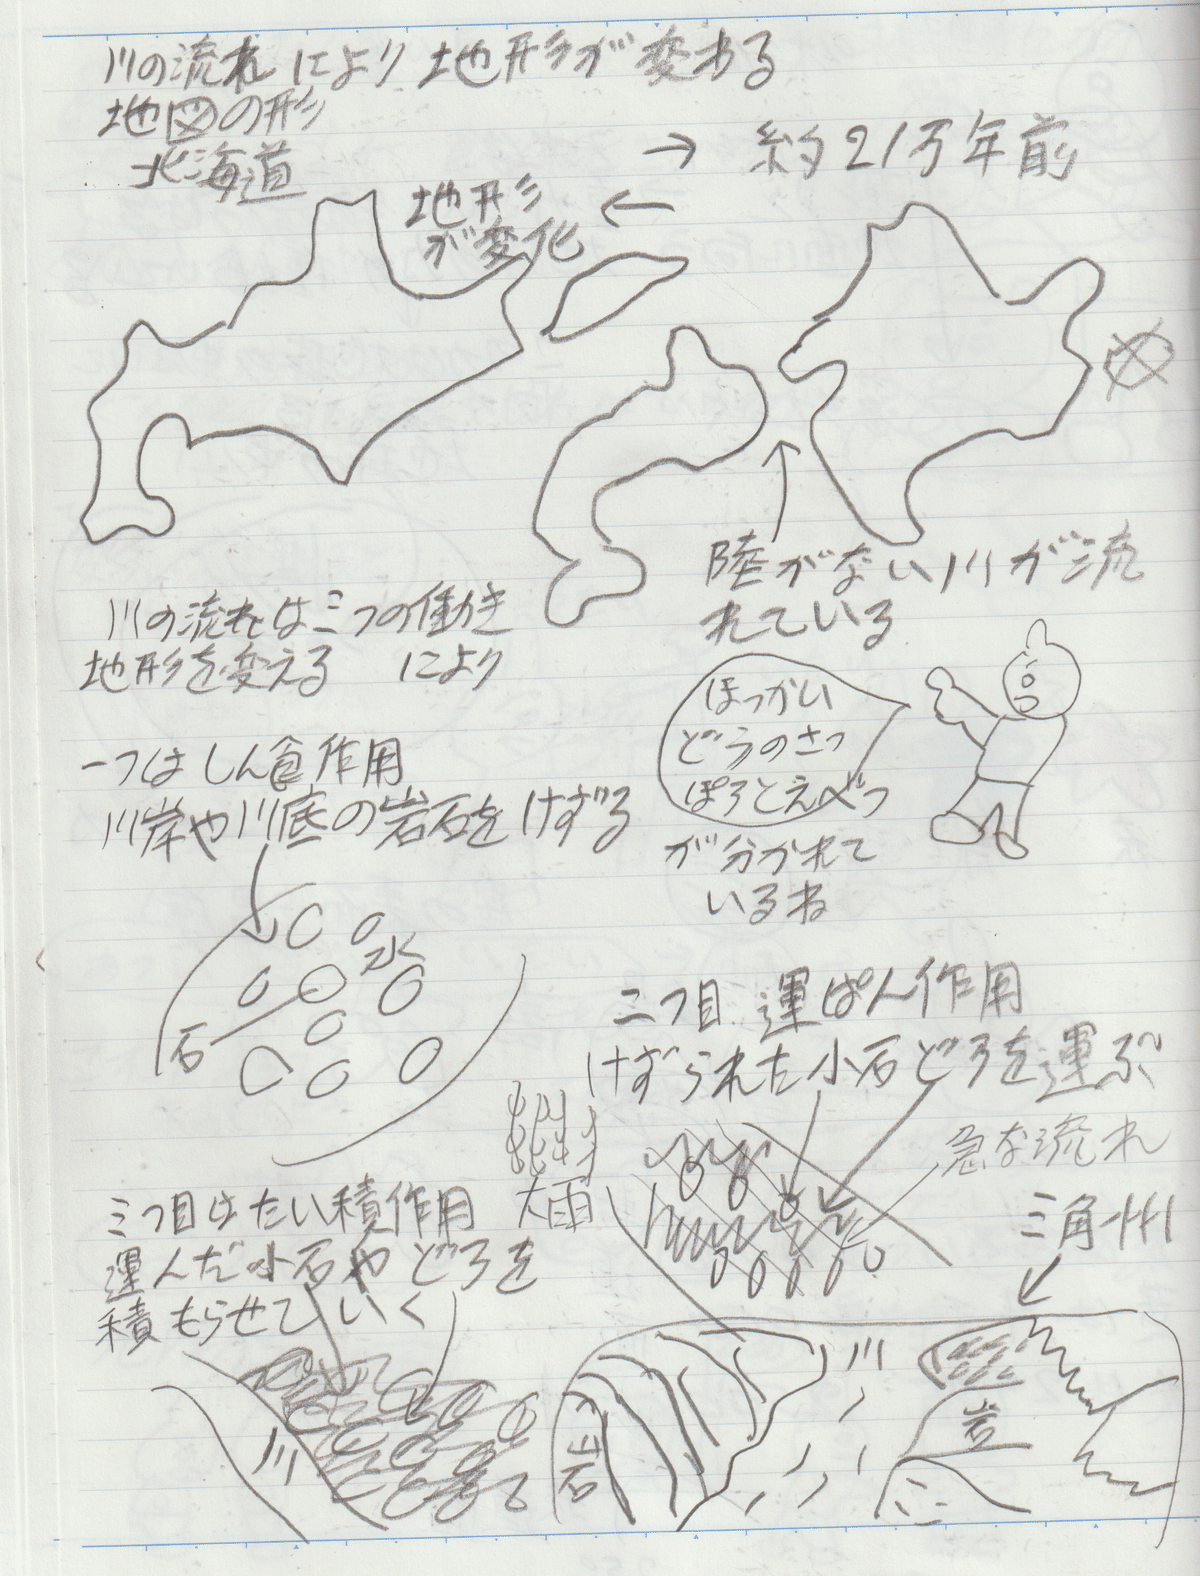 川の流れにより地形が変わる
地図の形
北海道
→ 約21万年前
地形 ←
が変化
陸がない川が流
れている
川の流れは三つの働き
地形を変える により
ほっかい
どうのさっ
ぽろとえべつ
が分かれて
いるね
一つはしん食作用
川岸や川底の岩石をけずる
水
石
二つ目 運ぱん作用
けずられた小石どろを運ぶ
急な流れ
大雨
三角州
三つ目はたい積作用
運んだ小石やどろを
積もらせていく
川
川
岩
岩